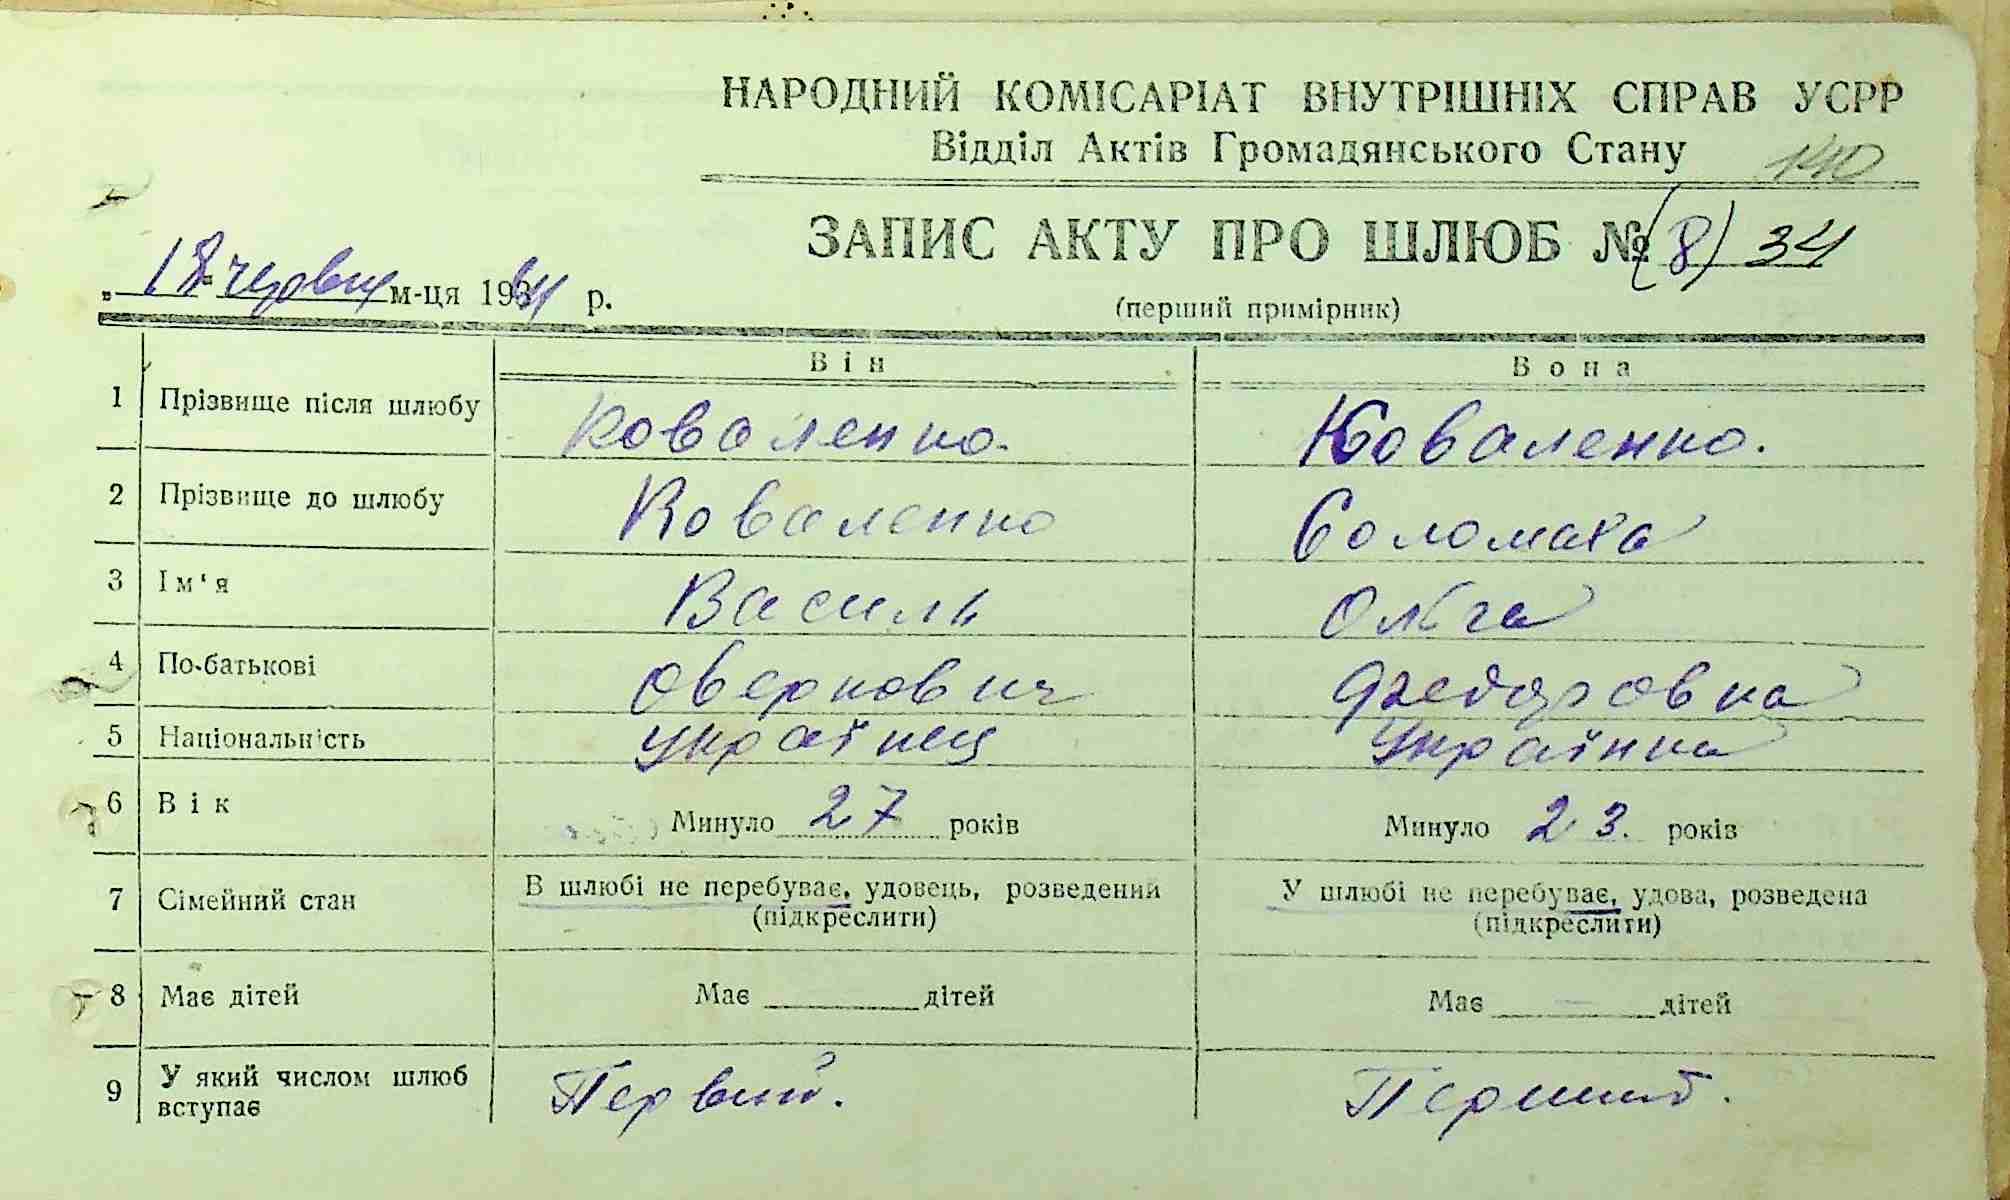 НАРОДНИЙ КОМІСАРІАТ ВНУТРІШНІХ СПРАВ УСРР
Відділ Актів Громадянського Стану 140
ЗАПИС АКТУ ПРО ШЛЮБ № (8) 34
„ 18 червня м-ця 1934 р.
(перший примірник)
Він Вона
1 Прізвище після шлюбу Коваленко. Коваленко.
2 Прізвище до шлюбу Коваленко Соломаха
3 Ім'я Василь Ольга
4 По-батькові Оверкович Федоровна
5 Національність українец Українка
6 Вік Минуло 27 років Минуло 23. років
7 Сімейний стан В шлюбі не перебуває, удовець, розведений У шлюбі не перебуває, удова, розведена
(підкреслити) (підкреслити)
8 Має дітей Має дітей Має — дітей
9 У який числом шлюб вступає Первий. Перший.